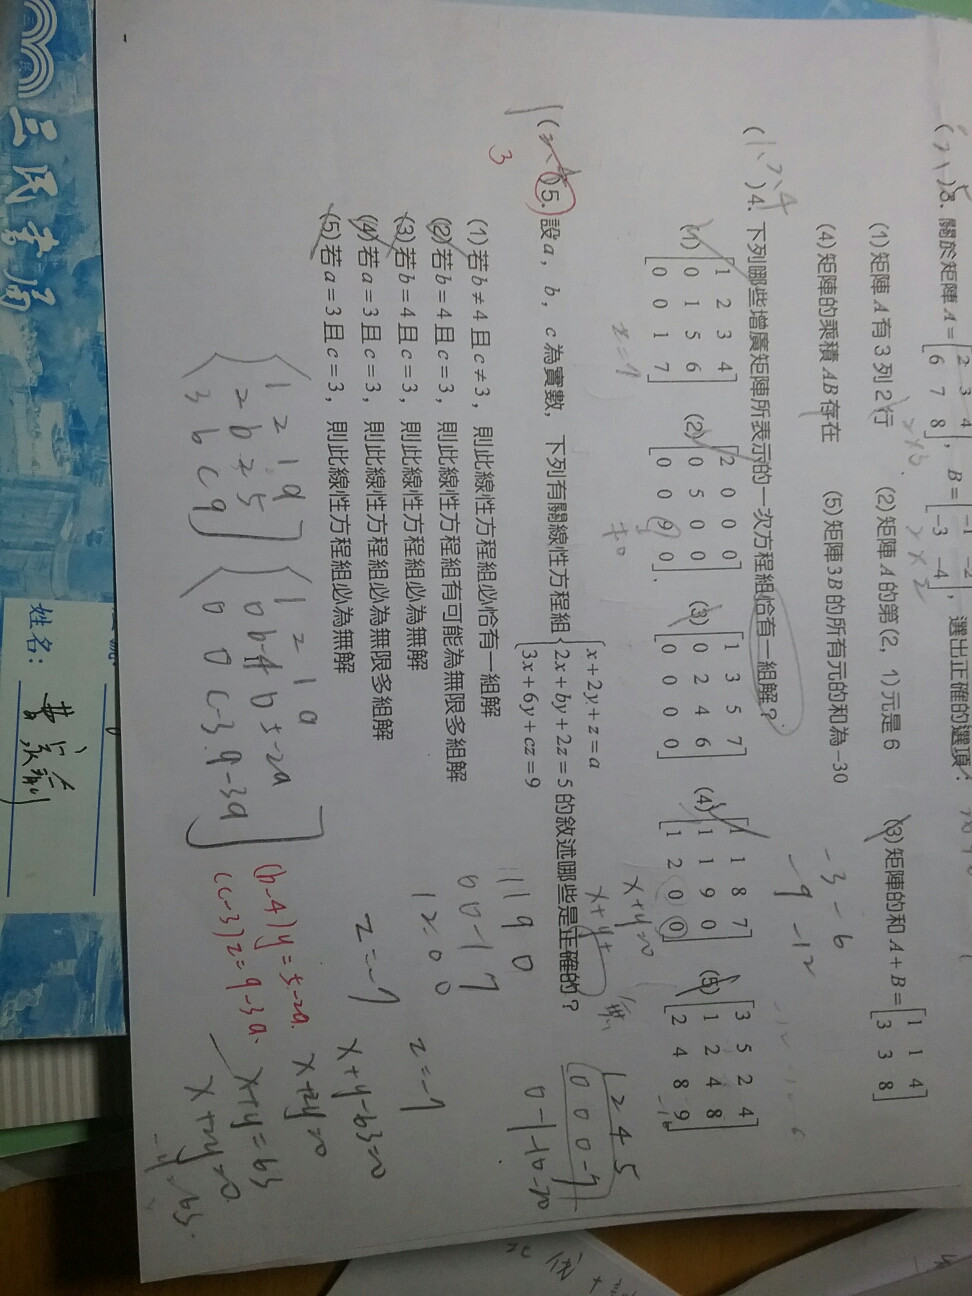 (2、5)3. 關於矩陣 A = [2 3 4; 6 7 8], B = [-1 -2; -3 -4], 選出正確的選項?
2×3 2×2
(1)矩陣 A 有 3 列 2 行 (2)矩陣 A 的第(2, 1)元是 6 (3)矩陣的和 A + B = [1 1 4; 3 3 8]
(4)矩陣的乘積 AB 存在 (5)矩陣 3B 的所有元的和為 -30
-3 -6
-9 -12
(1、2、4)4. 下列哪些增廣矩陣所表示的一次方程組恰有一組解?
(1)[1 2 3 4; 0 1 5 6; 0 0 1 7] (2)[2 0 0 0; 0 5 0 0; 0 0 9 0] (3)[1 3 5 7; 0 2 4 6; 0 0 0 0] (4)[1 1 8 7; 1 1 9 0; 1 2 0 0] (5)[3 5 2 4; 1 2 4 8; 2 4 8 9]
z=7 ≠0 x+y=0 -16
5. 設 a, b, c 為實數, 下列有關線性方程組 {x + 2y + z = a; 2x + by + 2z = 5; 3x + 6y + cz = 9 的敘述哪些是正確的?
3
(1)若 b ≠ 4 且 c ≠ 3, 則此線性方程組必恰有一組解
(2)若 b = 4 且 c = 3, 則此線性方程組有可能為無限多組解
(3)若 b = 4 且 c = 3, 則此線性方程組必為無解
(4)若 a = 3 且 c = 3, 則此線性方程組必為無限多組解
(5)若 a = 3 且 c = 3, 則此線性方程組必為無解
1 2 4 5
0 0 0 -7
1 1 9 0
0 0 -1 7
1 2 0 0
z=-7
z=-7
x+y-63=0
x+2y=0
x+y=63
x+2y=0
-y=63
1 2 1 a
2 b 2 5
3 6 c 9
1 2 1 a
0 b-4 0 5-2a
0 0 c-3 9-3a
(b-4)y=5-2a
(c-3)z=9-3a
三民書局
姓名: